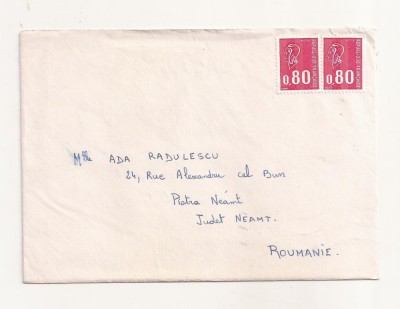 RÉPUBLIQUE FRANÇAISE
0,80
RÉPUBLIQUE FRANÇAISE
0,80
Mlle ADA RADULESCU
24, Rue Alexandru cel Bun
Piatra Neamt
Judet NEAMT.
ROUMANIE.